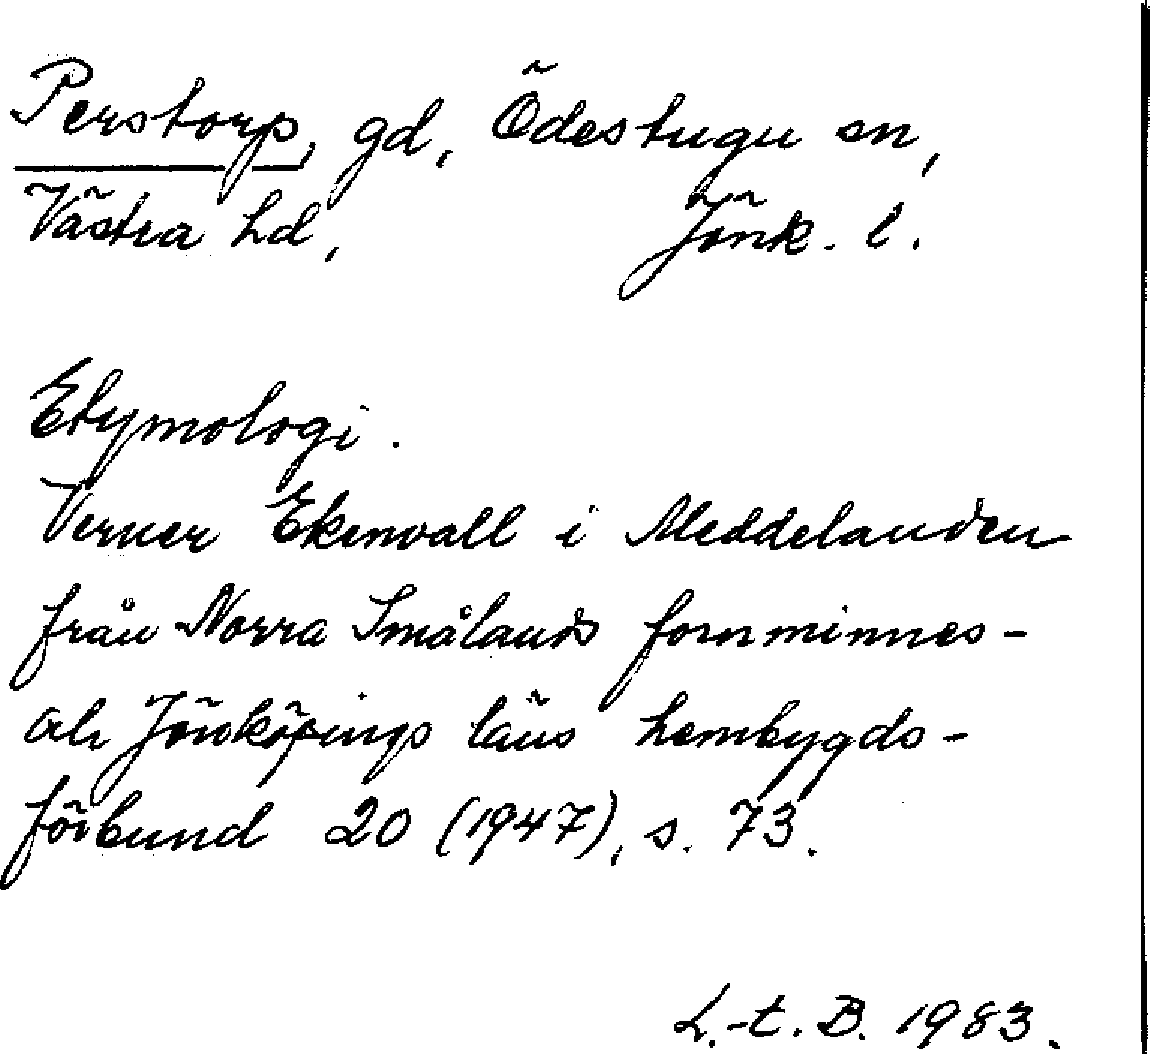 Perstorp, gd, Ödestugu sn,
Västra hd, Jönk. l.
Etymologi.
Verner Ekenvall i Meddelanden
från Norra Smålands fornminnes-
och Jönköpings läns hembygds-
förbund 20 (1947), s. 73.
L.-t. B. 1983.